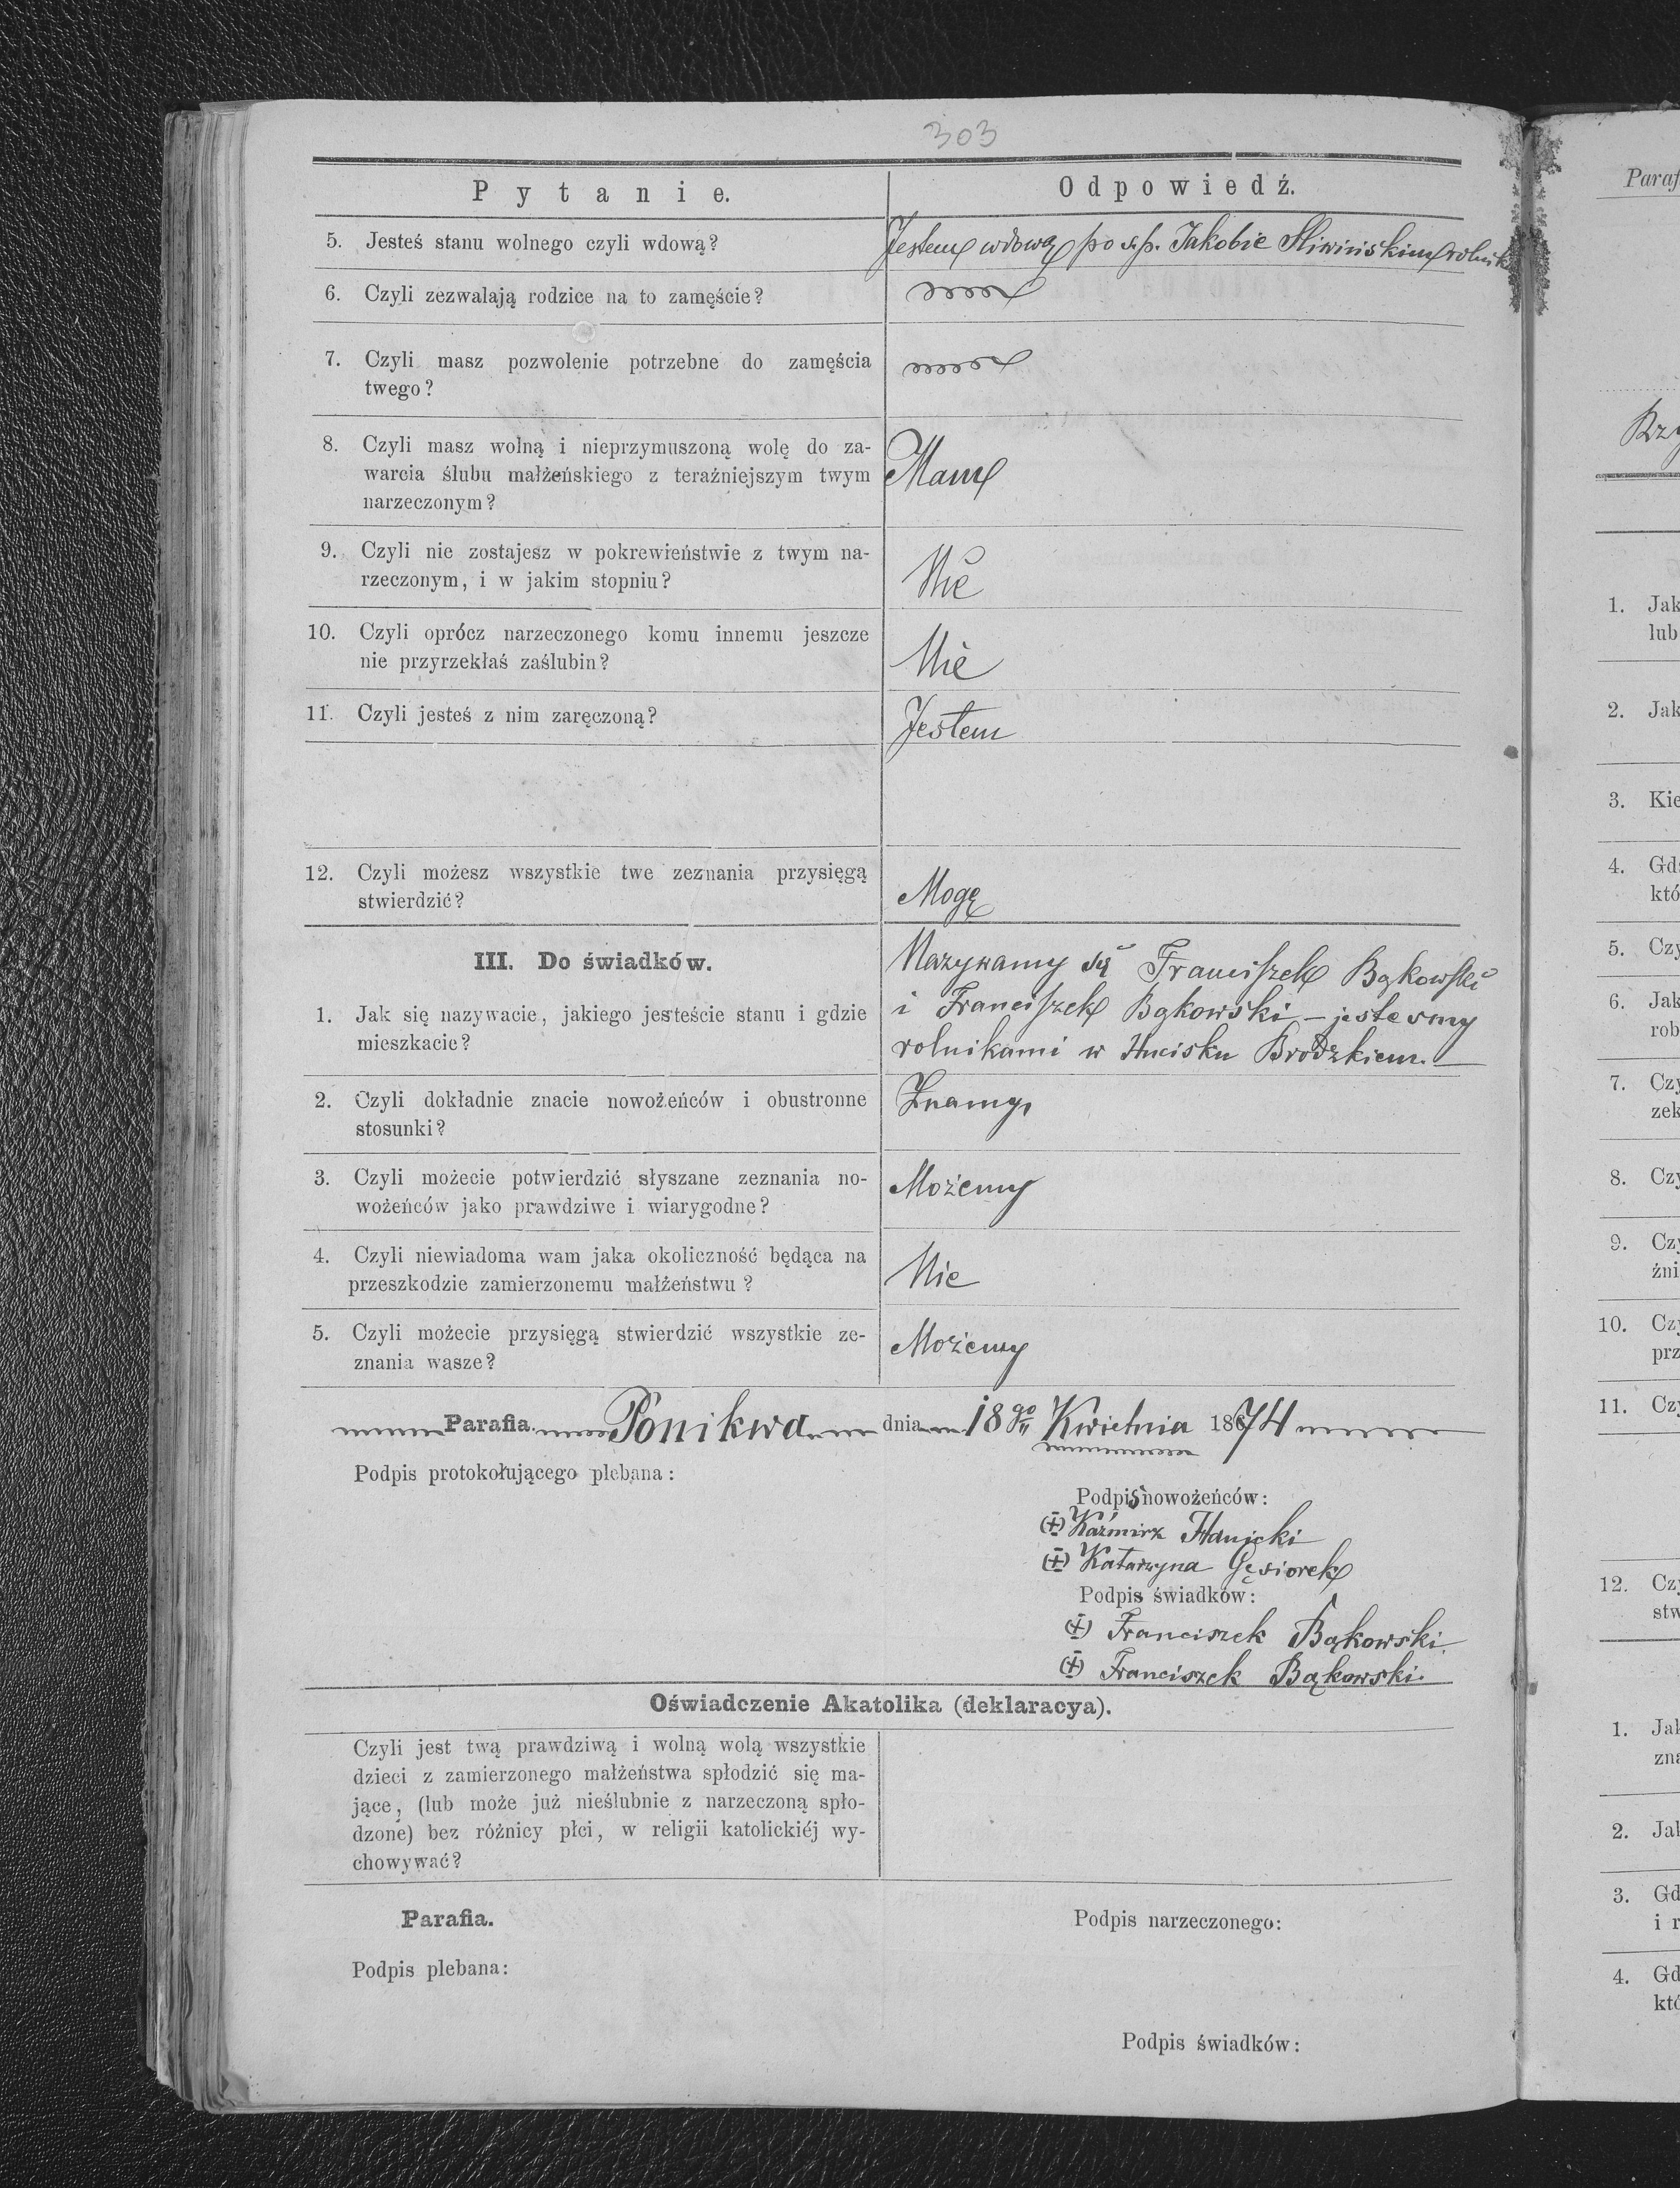 303
P y t a n i e.
O d p o w i e d ź.
5. Jesteś stanu wolnego czyli wdową?
Jestem wdową po ś.p. Jakobie Śliwińskim rolnik
6. Czyli zezwalają rodzice na to zamęście?
7. Czyli masz pozwolenie potrzebne do zamęścia
twego?
8. Czyli masz wolną i nieprzymuszoną wolę do za-
warcia ślubu małżeńskiego z teraźniejszym twym
narzeczonym?
Mam
9. Czyli nie zostajesz w pokrewieństwie z twym na-
rzeczonym, i w jakim stopniu?
Nie
10. Czyli oprócz narzeczonego komu innemu jeszcze
nie przyrzekłaś zaślubin?
Nie
11. Czyli jesteś z nim zaręczoną?
Jestem
12. Czyli możesz wszystkie twe zeznania przysięgą
stwierdzić?
Mogę
III. Do świadków.
1. Jak się nazywacie, jakiego jesteście stanu i gdzie
mieszkacie?
Nazywamy się Franciszek Bąkowski
i Franciszek Bąkowski – jestesmy
rolnikami w Hucisku Brodzkiem.
2. Czyli dokładnie znacie nowożeńców i obustronne
stosunki?
Znamy
3. Czyli możecie potwierdzić słyszane zeznania no-
wożeńców jako prawdziwe i wiarygodne?
Możemy
4. Czyli niewiadoma wam jaka okoliczność będąca na
przeszkodzie zamierzonemu małżeństwu?
Nie
5. Czyli możecie przysięgą stwierdzić wszystkie ze-
znania wasze?
Możemy
Parafia. Ponikwa dnia 18go Kwietnia 1874
Podpis protokołującego plebana:
Podpis nowożeńców:
(+) Kaźmirz Hanicki
(+) Katarzyna Gęsiorek
Podpis świadków:
(+) Franciszek Bąkowski
(+) Franciszek Bąkowski.
Oświadczenie Akatolika (deklaracya).
Czyli jest twą prawdziwą i wolną wolą wszystkie
dzieci z zamierzonego małżeństwa spłodzić się ma-
jące, (lub może już nieślubnie z narzeczoną spło-
dzone) bez różnicy płci, w religii katolickiéj wy-
chowywać?
Parafia.
Podpis narzeczonego:
Podpis plebana:
Podpis świadków:
Paraf
1. Jak
lub
2. Jak
3. Kie
4. Gdz
któ
5. Czy
6. Jak
rob
7. Czy
zek
8. Czy
9. Czy
źni
10. Czy
prz
11. Czy
12. Czy
stw
1. Jak
zna
2. Jak
3. Gd
i r
4. Gd
któ